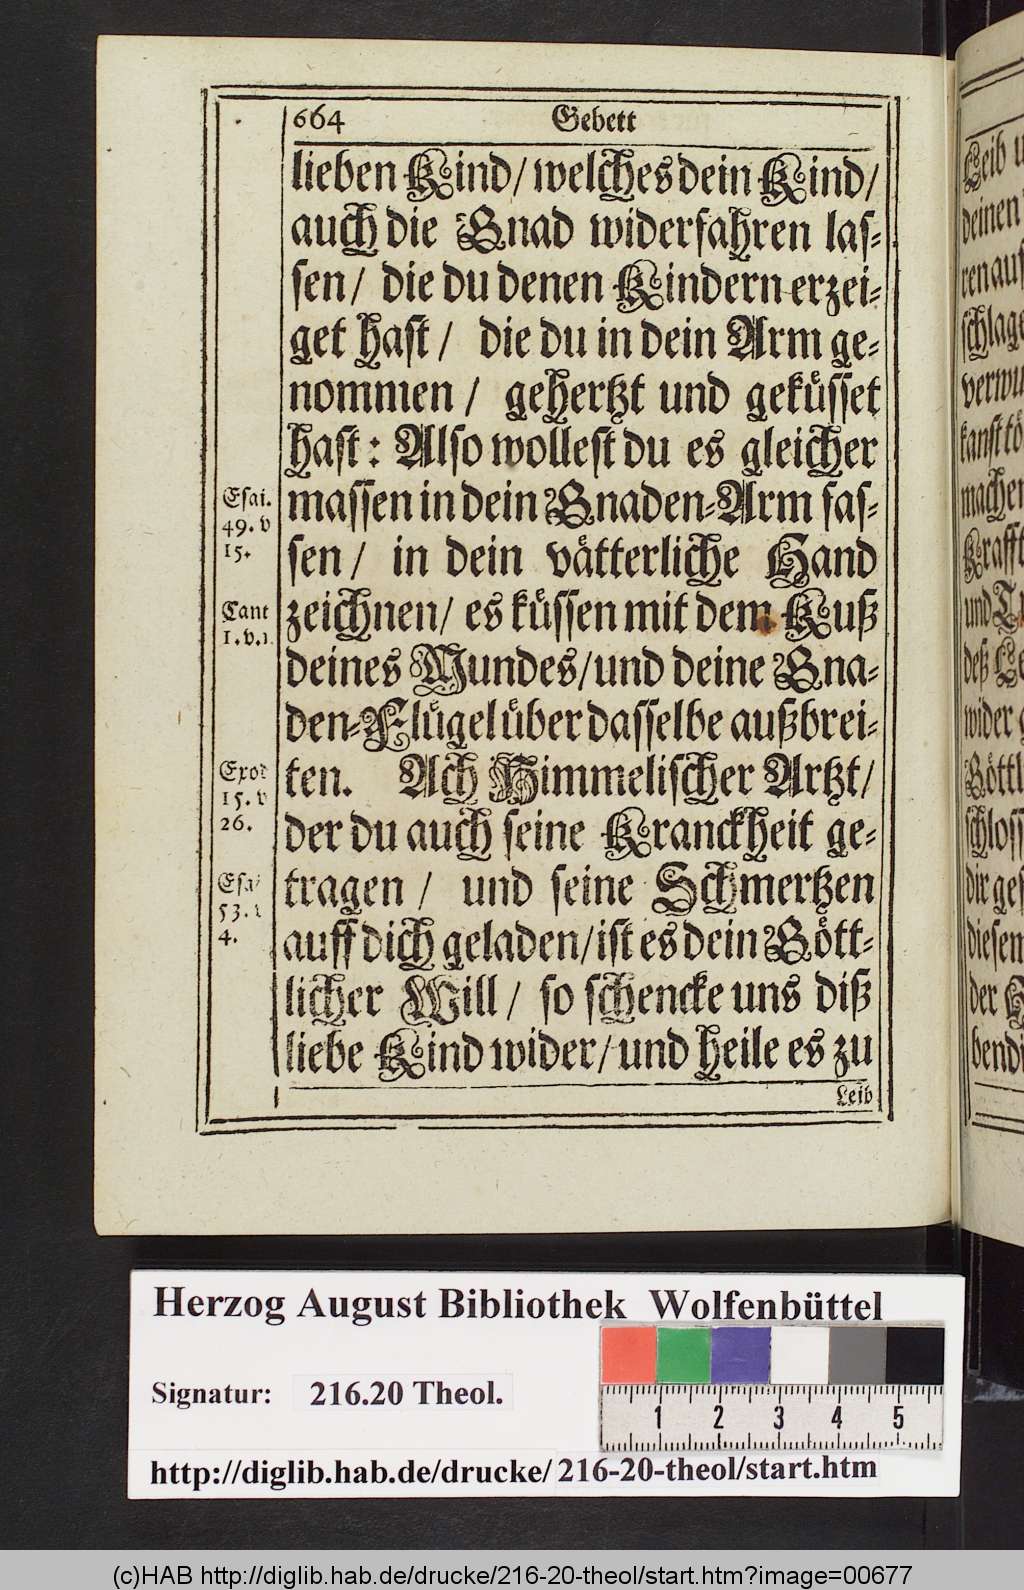 664 Gebett
lieben Kind/ welches dein Kind/
auch die Gnad widerfahren las-
sen/ die du denen Kindern erzei-
get hast/ die du in dein Arm ge-
nommen/ gehertzt und geküsset
hast: Also wollest du es gleicher
massen in dein Gnaden-Arm fas-
sen/ in dein vätterliche Hand
zeichnen/ es küssen mit dem Kuß
deines Mundes/ und deine Gna-
den-Flügel über dasselbe außbrei-
ten. Ach Himmelischer Artzt/
der du auch seine Kranckheit ge-
tragen/ und seine Schmertzen
auff dich geladen/ ist es dein Gött-
licher Will/ so schencke uns diß
liebe Kind wider/ und heile es zu
Leib
Esai.
49. v
15.
Cant
1. v.1.
Exod
15. v
26.
Esai
53. v
4.
Leib
deinen
ren auf
kanst tö
machen
Krafft
und
deß
wider
Göttl
schloss
dir ges
diesem
der
bendi
Herzog August Bibliothek Wolfenbüttel
Signatur: 216.20 Theol.
1 2 3 4 5
http://diglib.hab.de/drucke/216-20-theol/start.htm
(c)HAB http://diglib.hab.de/drucke/216-20-theol/start.htm?image=00677